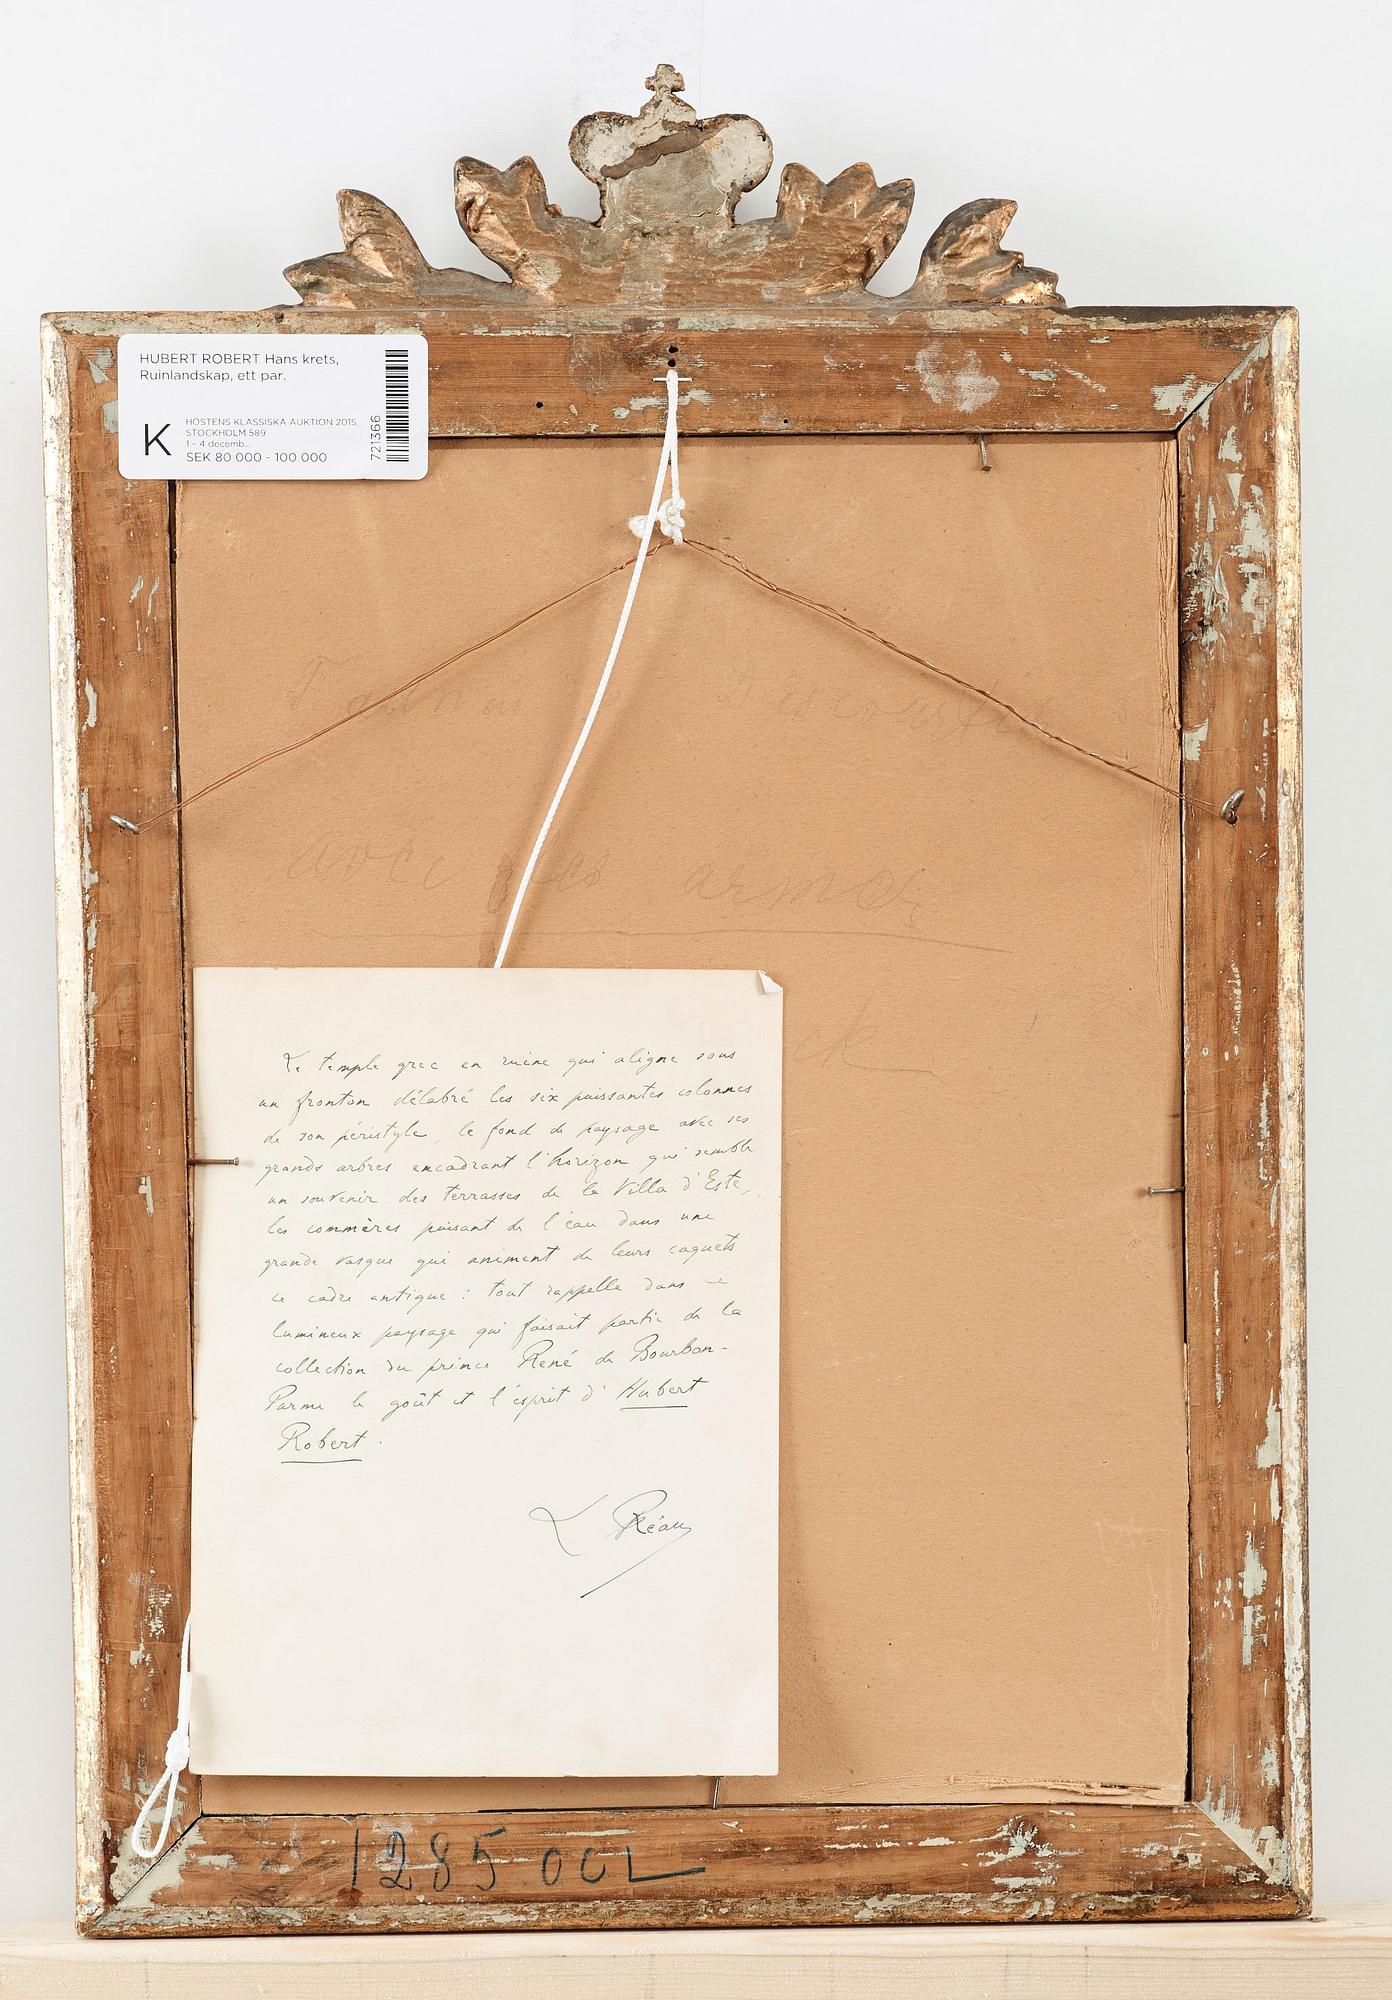 HUBERT ROBERT Hans krets,
Ruinlandskap, ett par.
K
HÖSTENS KLASSISKA AUKTION 2015,
STOCKHOLM 589
1 - 4 decemb...
SEK 80 000 - 100 000
721366
avec les armes
Le temple grec en ruine qui aligne sous
un fronton délabré les six puissantes colonnes
de son péristyle, le fond de paysage avec ses
grands arbres encadrant l'horizon qui semble
un souvenir des terrasses de la Villa d'Este,
les commères puisant de l'eau dans une
grande vasque qui animent de leurs caquets
ce cadre antique : tout rappelle dans ce
lumineux paysage qui faisait partie de la
collection du prince René de Bourbon-
Parme le goût et l'esprit d'Hubert
Robert.
L Réau
1285 OCL